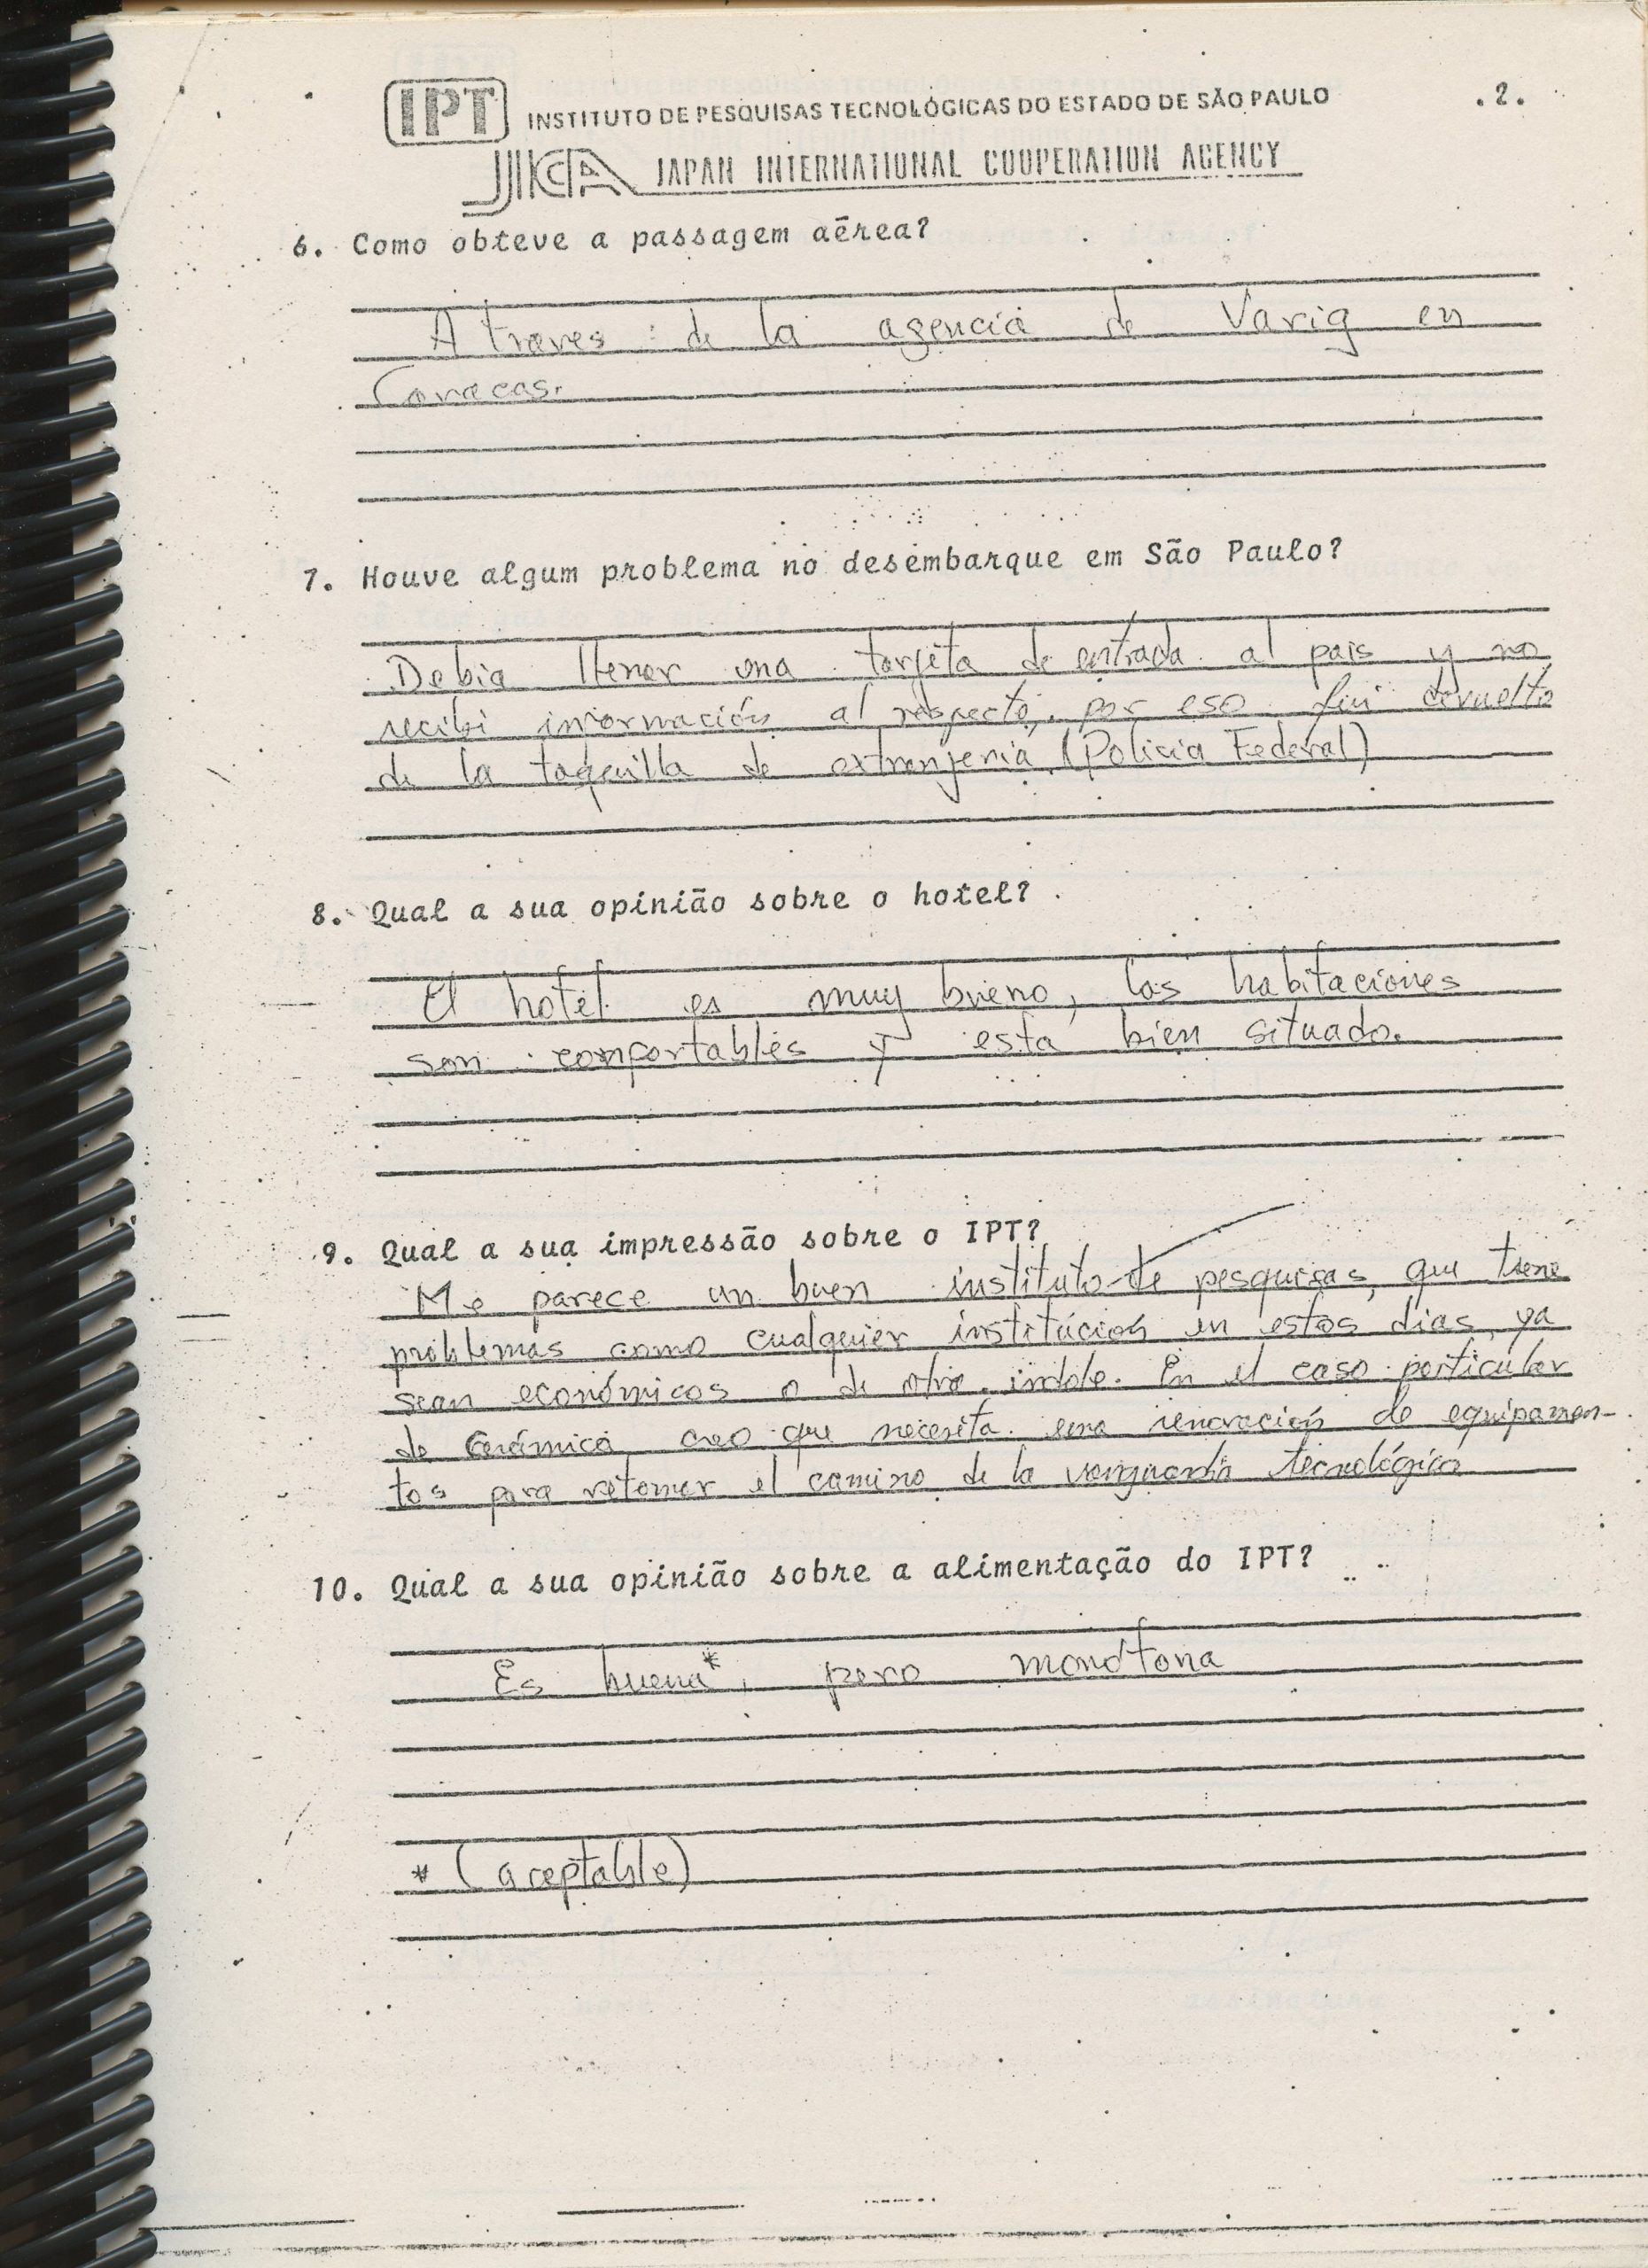 IPT INSTITUTO DE PESQUISAS TECNOLÓGICAS DO ESTADO DE SÃO PAULO .2.
JICA JAPAN INTERNATIONAL COOPERATION AGENCY
6. Como obteve a passagem aérea?
A traves de la agencia de Varig en
Caracas.
7. Houve algum problema no desembarque em São Paulo?
Debia llenar una tarjeta de entrada al pais y no
recibi información al respecto, por eso fui devuelto
de la taquilla de extranjeria (Policia Federal)
8. Qual a sua opinião sobre o hotel?
El hotel es muy bueno, las habitaciones
son comfortables y esta bien situado.
9. Qual a sua impressão sobre o IPT?
Me parece un buen instituto de pesquisas, que tiene
problemas como cualquier institución en estos dias, ya
sean económicos o de otra indole. En el caso particular
de Cerámica creo que necesita una renovación de equipamen-
tos para retomar el camino de la vanguardia tecnológica
10. Qual a sua opinião sobre a alimentação do IPT?
Es buena*, pero monótona
* (aceptable)